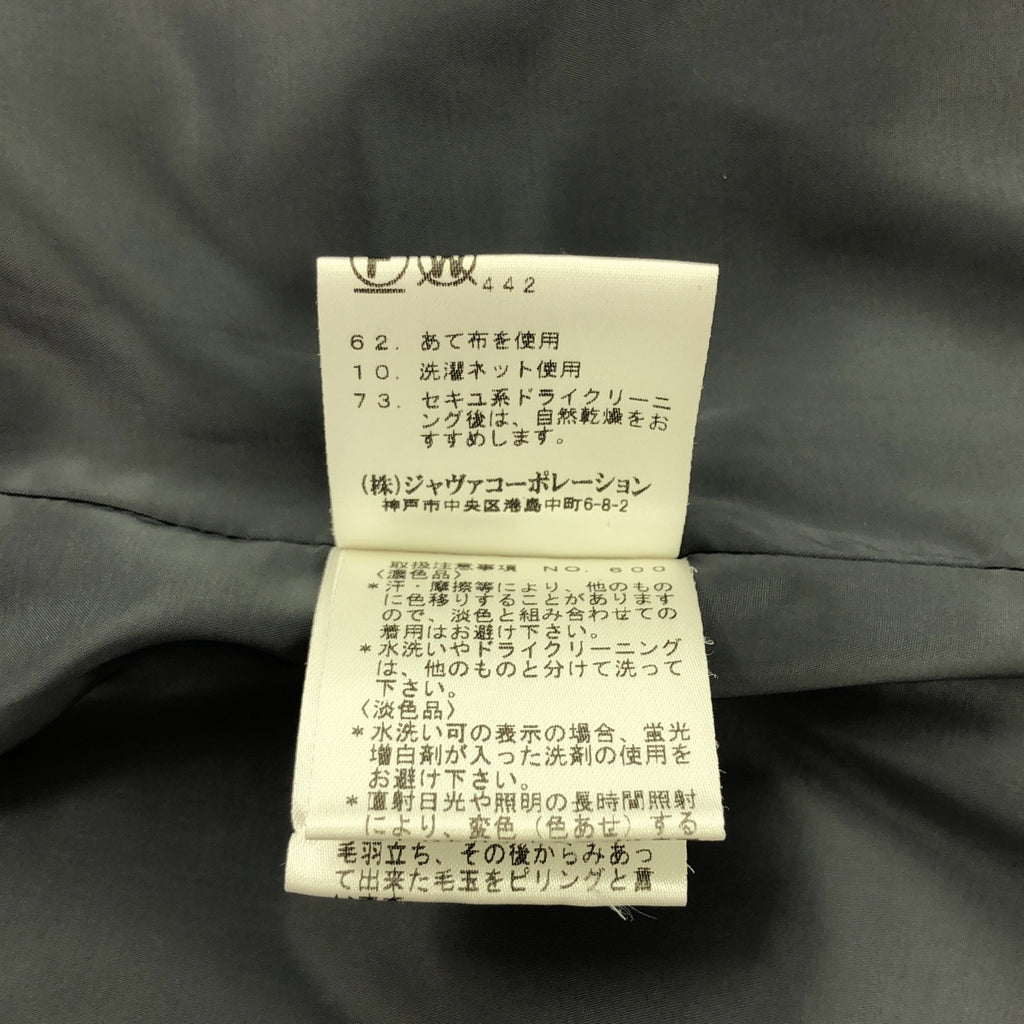 P W 442
62. あて布を使用
10. 洗濯ネット使用
73. セキユ系ドライクリーニ
ング後は、自然乾燥をお
すすめします。
(株)ジャヴァコーポレーション
神戸市中央区港島中町6-8-2
取扱注意事項 NO. 600
〈濃色品〉
*汗・摩擦等により、他のもの
に色移りすることがあります
ので、淡色と組み合わせての
着用はお避け下さい。
*水洗いやドライクリーニング
は、他のものと分けて洗って
下さい。
〈淡色品〉
*水洗い可の表示の場合、蛍光
増白剤が入った洗剤の使用を
お避け下さい。
*直射日光や照明の長時間照射
により、変色(色あせ)する
毛羽立ち、その後からみあっ
て出来た毛玉をピリングと